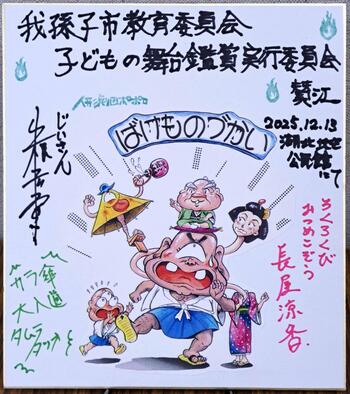 我孫子市教育委員会
子どもの舞台鑑賞実行委員会
賛江
人形劇団ポポロ
2025.12.13
湖北地区
公民館
にて
ばけものづかい
じいさん
ろくろくび
おつめこぞう
長尾涼香
カラ傘
大入道
タムラタツオ